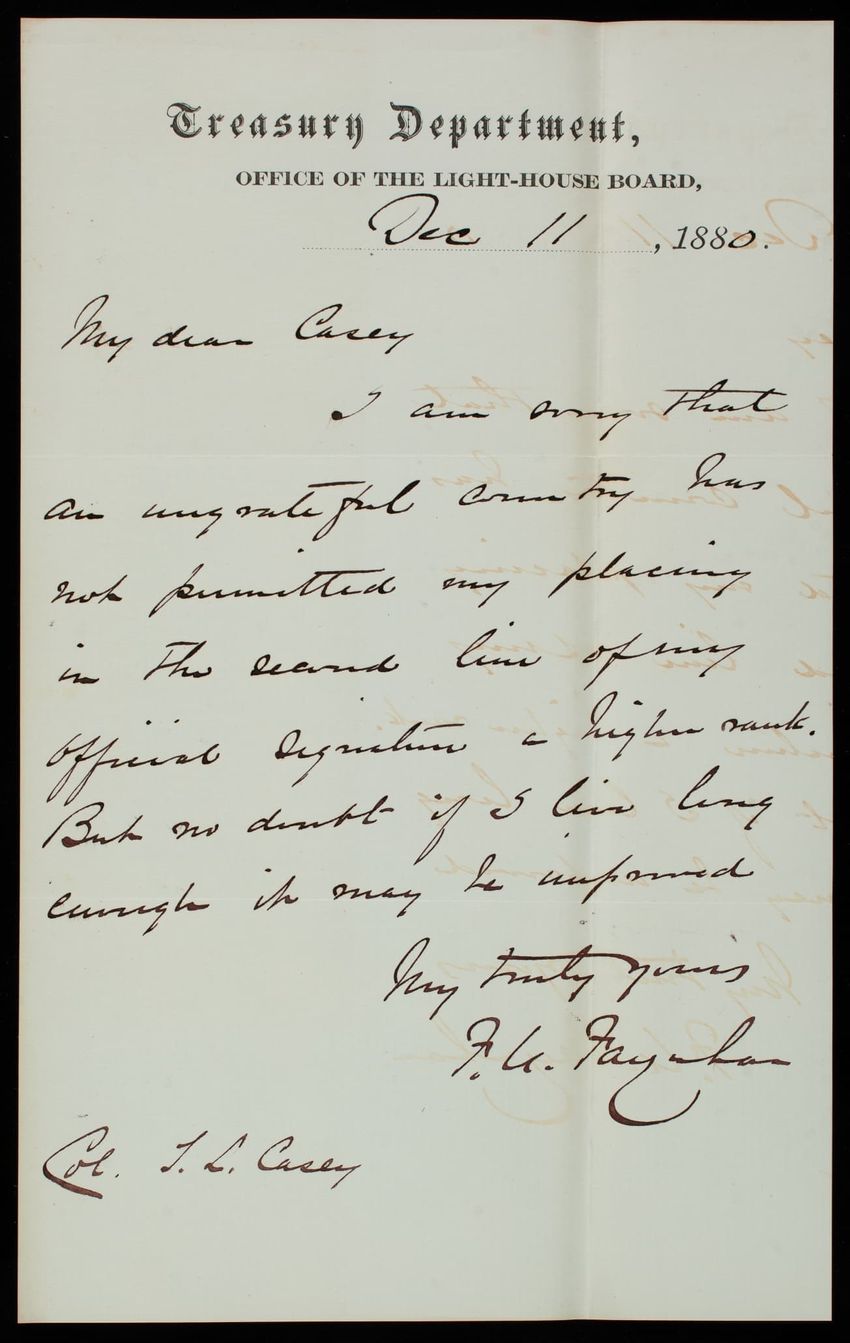 Treasury Department,
OFFICE OF THE LIGHT-HOUSE BOARD,
Dec 11, 1880.
My dear Casey
I am sorry that
an ungrateful country has
not permitted my placing
in the second line of my
official signature a higher rank.
But no doubt if I live long
enough it may be improved
truly yours
F. U. Farquhar
Col. T. L. Casey